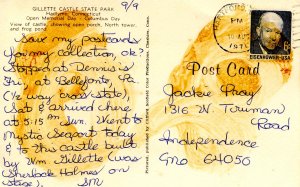 GILLETTE CASTLE STATE PARK
Hadlyme, Connecticut
Open Memorial Day - Columbus Day
View of castle, showing open porch, North tower,
and frog pond
9/9
Save my postcards
for my collection, ok?
Stopped at Dennis's
in at Bellefonte, Pa.
(I've been cross state),
Sat & arrived here
at 5:15 Sun. Went to
Mystic Seaport today
& to this castle built
by Wm. Gillette (was
Sherlock Holmes on
stage.) SM
PM
EISENHOWER·USA
6c
Post Card
Jackie Pray
1316 N. Truman
Road
Independence
Mo 64050